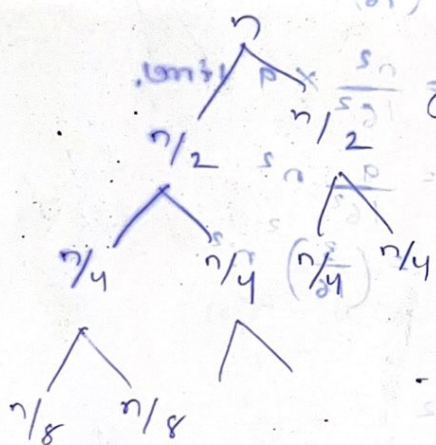 n
n/2 n/2
n/4 n/4 n/4 n/4
n/8 n/8